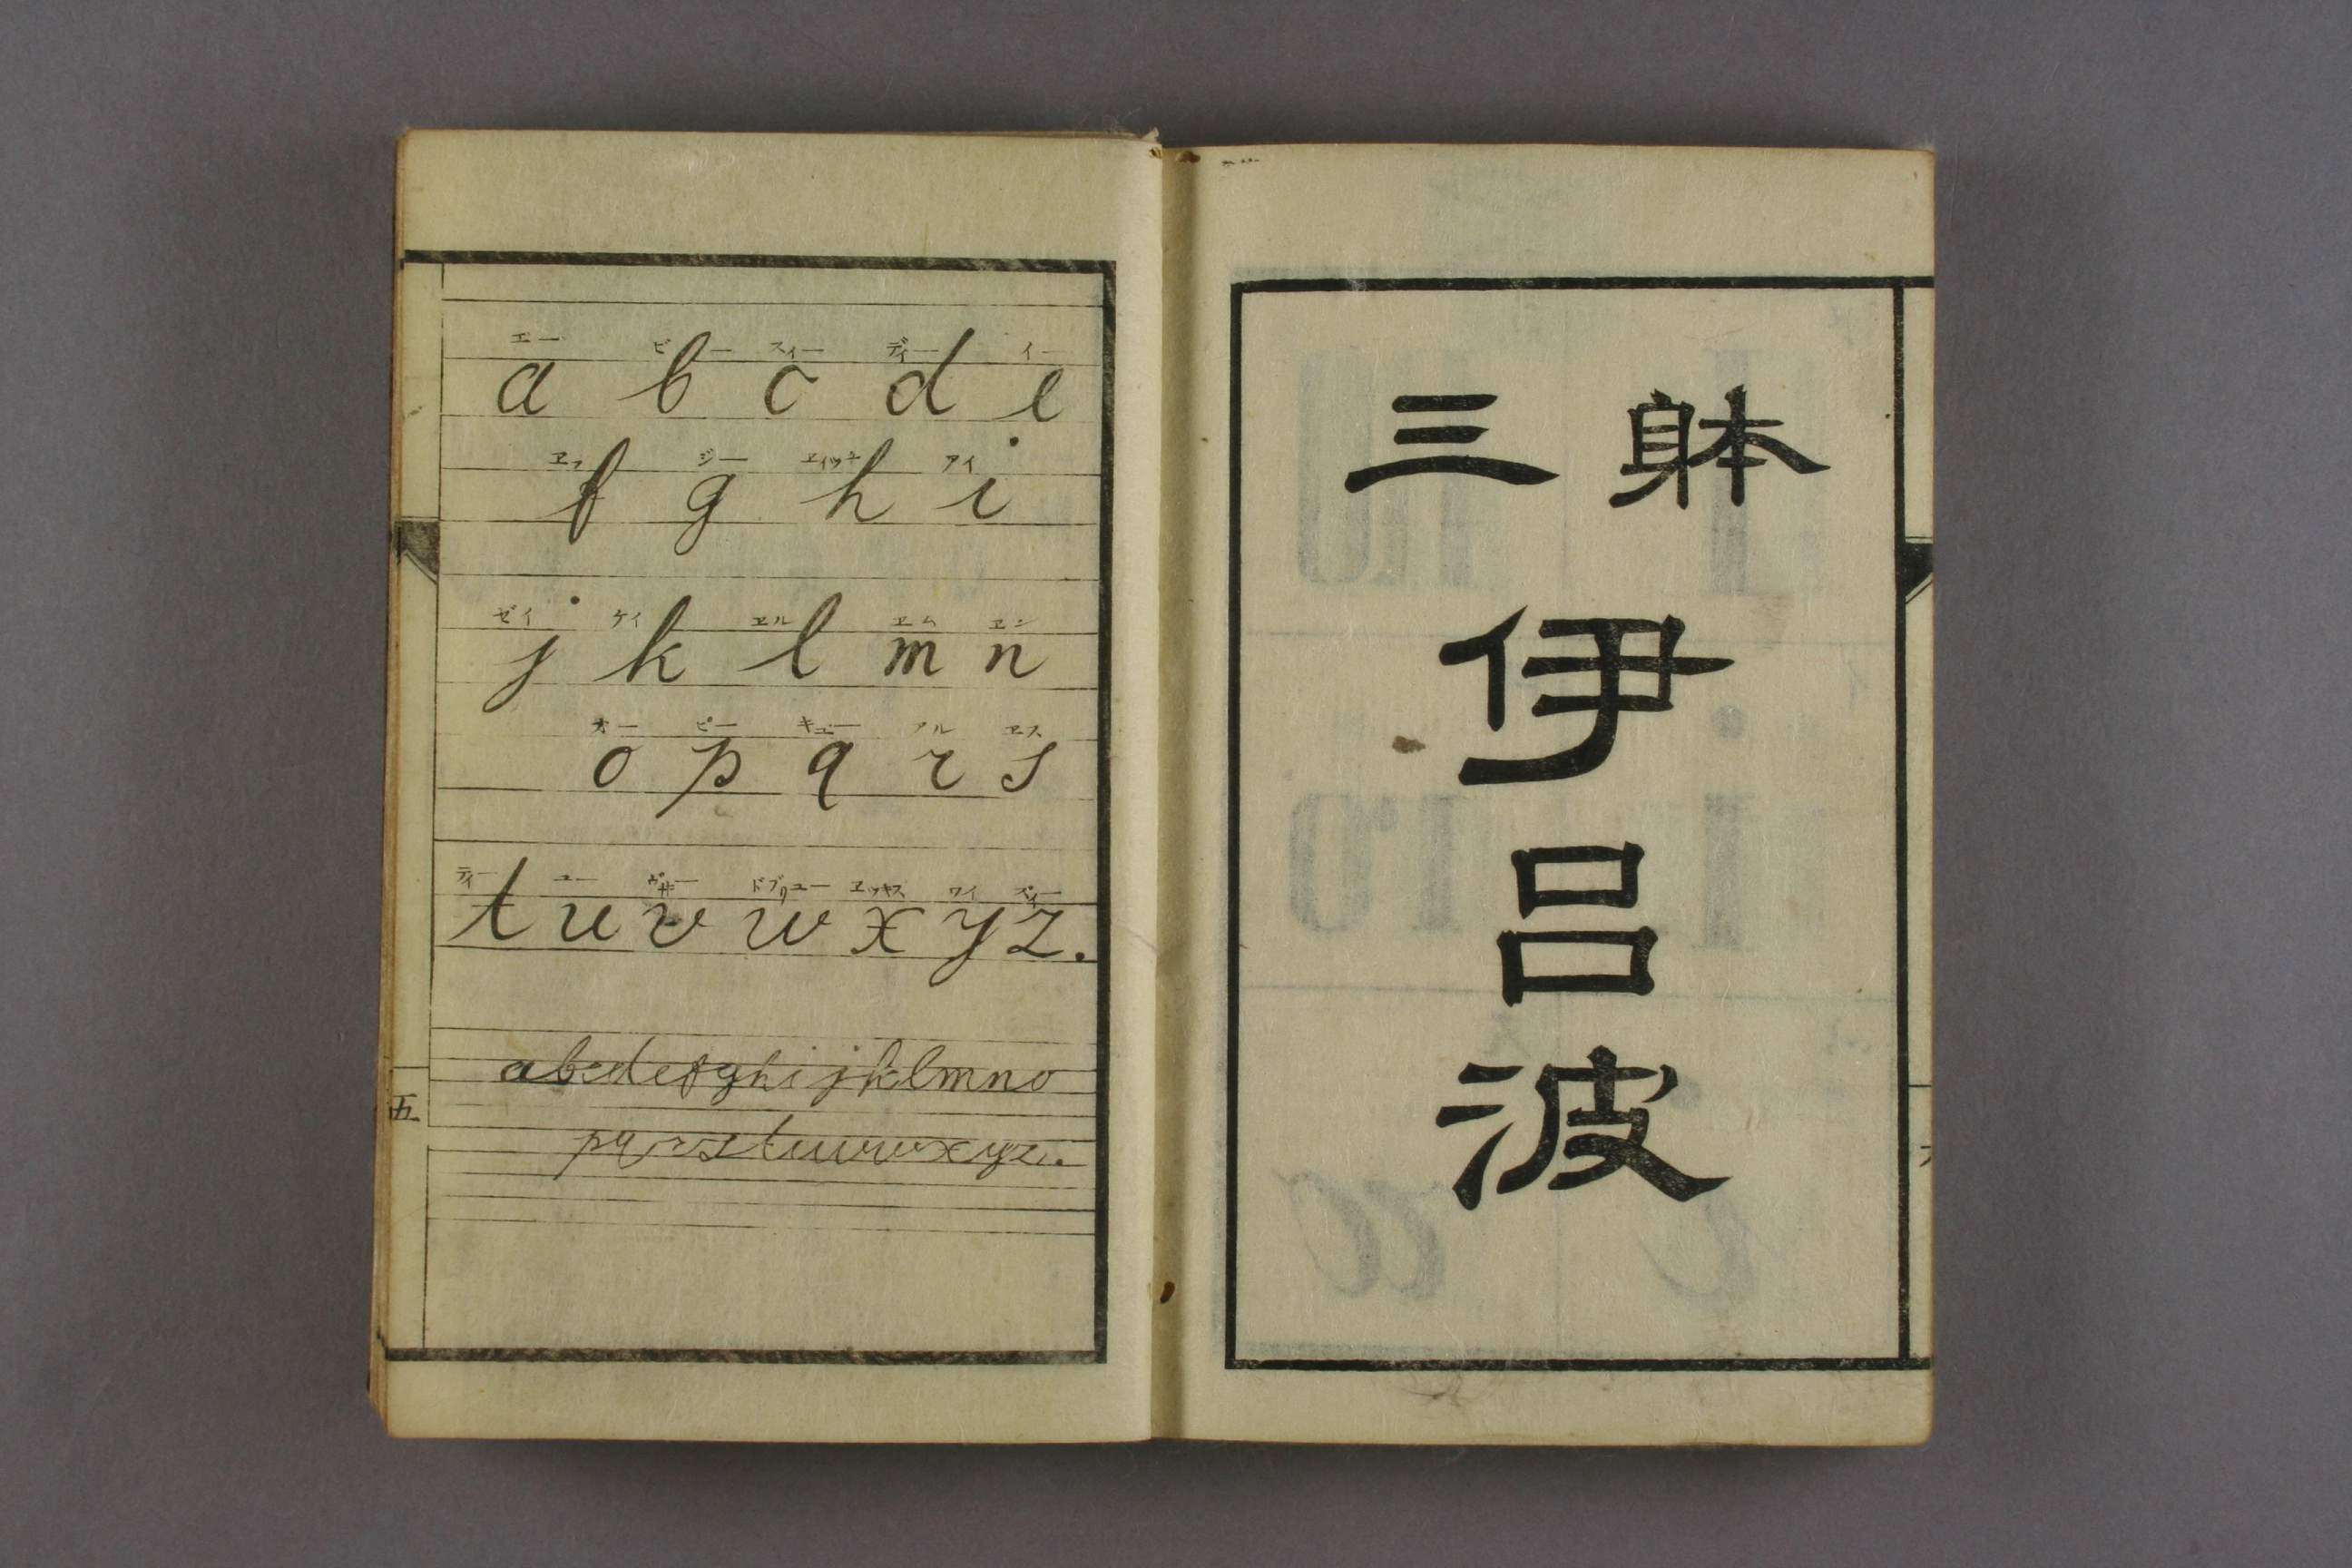 三躰
伊呂波
エー ビー スィー ディー イー
a b c d e
ヱフ ジー ヱイッチ アイ
f g h i
ゼイ ケイ ヱル ヱム ヱン
j k l m n
オー ピー キュー アル ヱス
o p q r s
ティー ユー ヴィー ドブリュー ヱッキス ワイ ズィー
t u v w x y z.
abcdefghijklmno
pqrstuvwxyz.
五